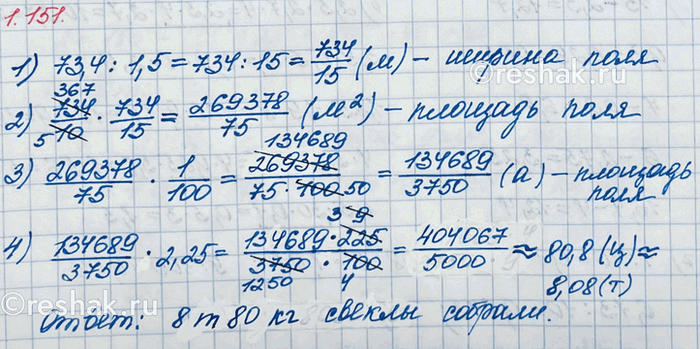 1.151.
1) 73,4 : 1,5 = 734 : 15 = 734/15 (м) – ширина поля
2) 367 734/10 5 · 734/15 = 269378/75 (м²) – площадь поля
3) 269378/75 · 1/100 = 134689 269378/75·100 50 = 134689/3750 (а) – площадь поля
4) 134689/3750 · 2,25 = 134689·225 3 9/3750·100 1250 4 = 404067/5000 ≈ 80,8 (ц) ≈
8,08 (т)
Ответ: 8 т 80 кг свеклы собрали.
reshak.ru